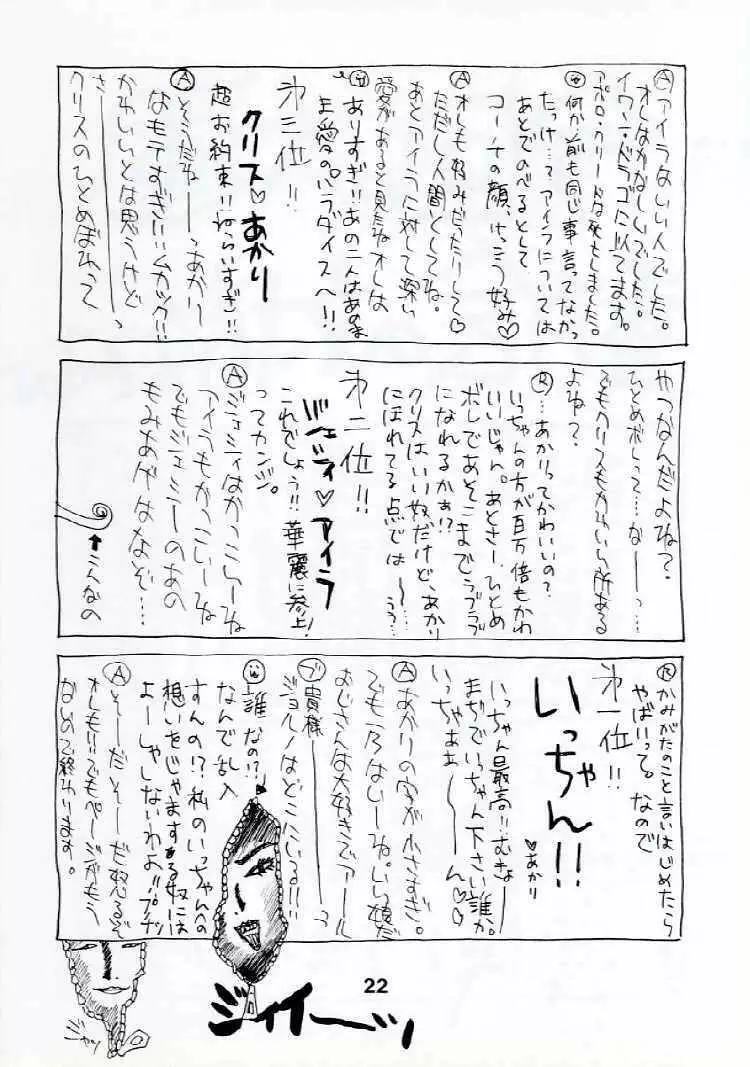 Ⓐアイラはいい人でした。
オレはかなしいでした。
イワン・ドラゴに似てます。
アポロ・クリードは死にました。
何か前も同じ事言ってなかっ
たっけ…?アイラについては
あとでのべるとして
コーナの顔、けっこう好み♡
Ⓐオレも好みだったりして♡
ただし人間としてね。
あとアイラに対して深い
愛があると見たねオレは
ありすぎ!!あの二人はあのま
ま愛のパラダイスへ!!
第三位!!
クリス♡あかり
超お約束!!ねらいすぎ!!
Ⓐそうだねーーっあかり
なもテすぎ!!ムカツク!!
かわいいとは思うけど
さーーっ
クリスのひとめぼれって
やつなんだよね?
ひとめボレって…なーっ…
でもクリスもかわいい所ある
よね?
Ⓡ…あかりってかわいいの?
いっちゃんの方が百万倍もかわ
いいじゃん。あとさー、ひとめ
ボレであそこまでラブラブ
になれるかぁ!?
クリスはいい奴だけど、あかり
にほれてる点では〜…うぅ…
第二位!!
ジェミティ♡アイラ
これでしょう!!華麗に参上!
ってカンジ。
Ⓐジェミティはかっこいーね
アイラもかっこいーね
でもジェミニーのあの
もみあげはなぞ…
↑こんなの
Ⓡかみがたのこと言いはじめたら
やばいって。なので
第一位!!
いっちゃん!!
♡あかり
いっちゃん最高!!むきょー
まぢでいっちゃん下さい誰か。
いっちゃあぁーーん♡♡
Ⓐあかりの字が小さすぎ。
でも乃はいーね。いい娘だ
おじさんは大好きでアール
ブ貴様ーーっ
ジョルノはどこにいる!!!
誰なの!?
なんで乱入
すんの!?私のいっちゃんへの
想いをじゃまする奴には
よーしゃしないわよ!!プンプン
Ⓐそーだそーだ怒るぞ
オレも!!でもページがもう
ないので終わります。
ジャッ
ジィイーッ
22